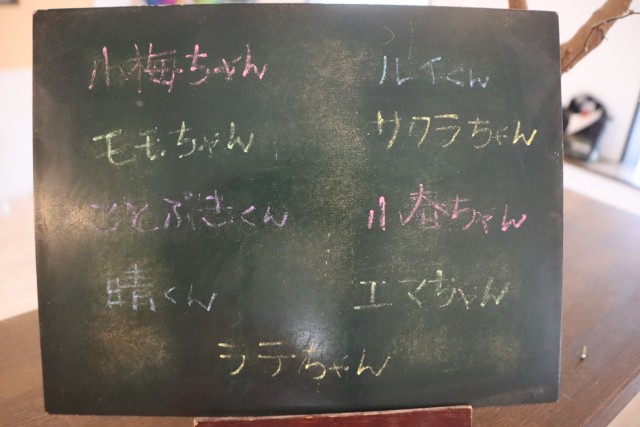 小梅ちゃん
ルイくん
モモちゃん
サクラちゃん
ことぶきくん
小春ちゃん
晴くん
エマちゃん
ラテちゃん